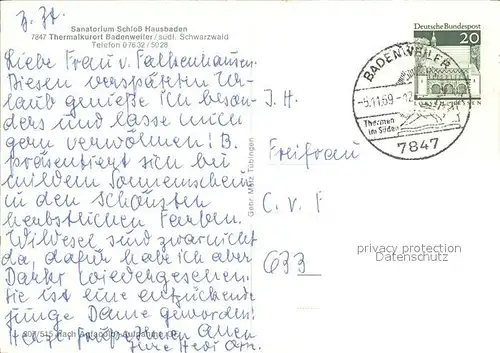 z. Zt.
Sanatorium Schloß Hausbaden
7847 Thermalkurort Badenweiler / südl. Schwarzwald
Telefon 07632 / 5028
Liebe Frau v. Falkenhausen.
Diesen verspäteten Ur-
laub genieße ich beson-
ders und lasse mich
gern verwöhnen! B.
präsentiert sich bei
mildem Sonnenschein
in den schönsten
herbstlichen Farben.
Wildesel sind zwar nicht
da, dafür habe ich aber
wiedergesehen.
Sie ist eine entzückende
junge Dame geworden!
Herzl. Grüße Ihnen Allen
Ihre Hedi
Gebr. Metz Tübingen
Deutsche Bundespost
20
BADENWEILER
-5.11.69-12
Thermen
im Süden
7847
I. H.
Freifrau
C. v. F
633
privacy protection
Datenschutz